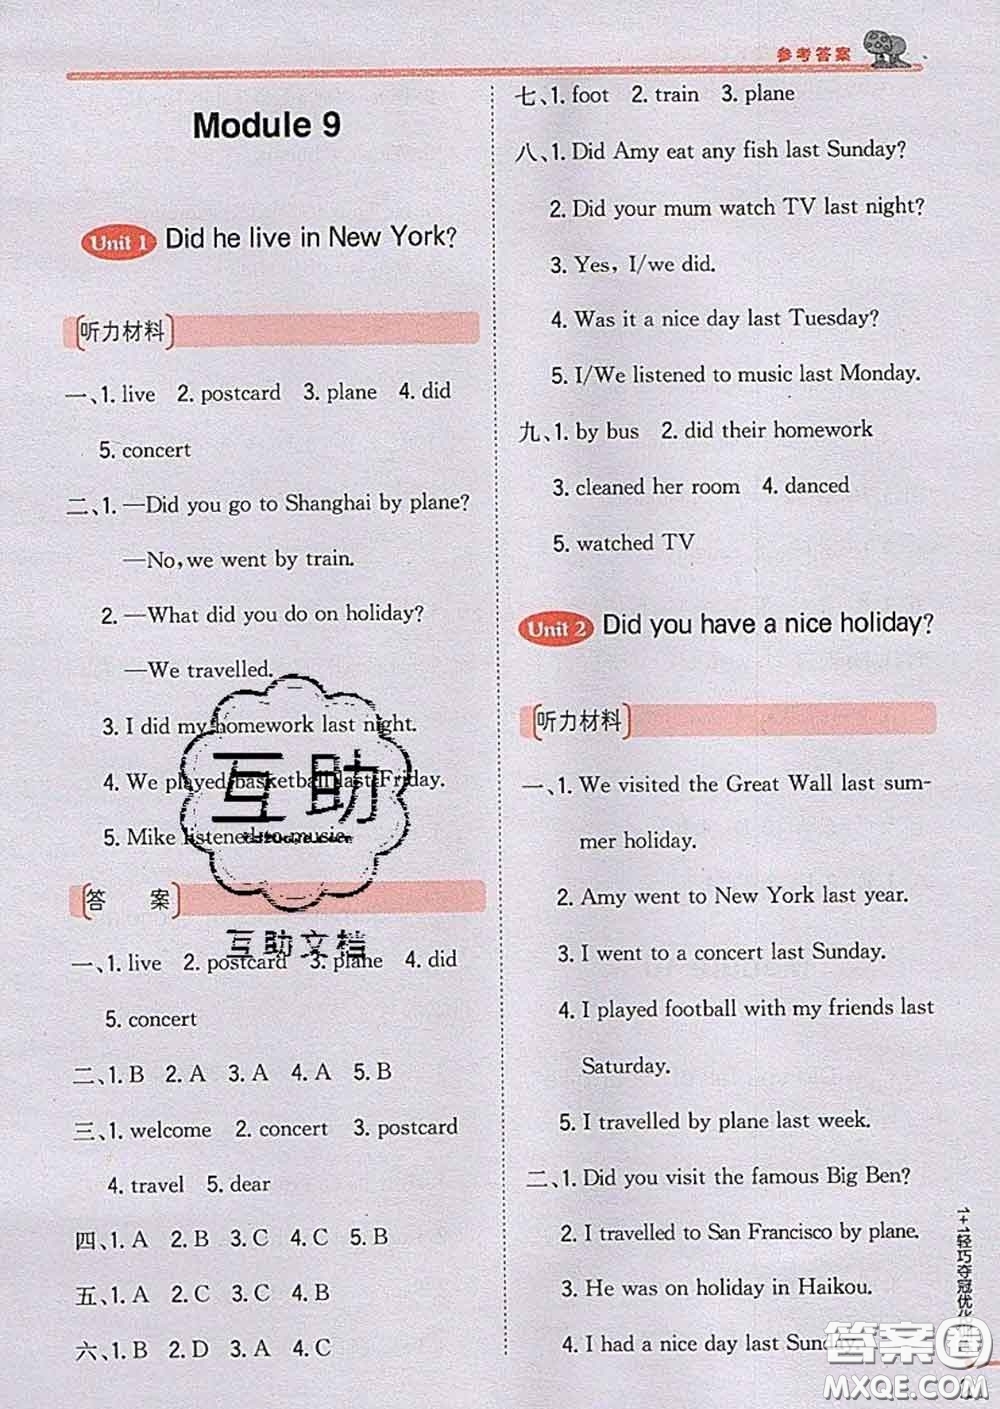 参考答案
Module 9
Unit 1 Did he live in New York?
听力材料
一、1. live 2. postcard 3. plane 4. did
5. concert
二、1. —Did you go to Shanghai by plane?
—No, we went by train.
2. —What did you do on holiday?
—We travelled.
3. I did my homework last night.
4. We played basketball last Friday.
5. Mike listened to music.
答 案
一、1. live 2. postcard 3. plane 4. did
5. concert
二、1. B 2. A 3. A 4. A 5. B
三、1. welcome 2. concert 3. postcard
4. travel 5. dear
四、1. A 2. B 3. C 4. C 5. B
五、1. A 2. C 3. C 4. B
六、1. B 2. D 3. A 4. C
七、1. foot 2. train 3. plane
八、1. Did Amy eat any fish last Sunday?
2. Did your mum watch TV last night?
3. Yes, I/we did.
4. Was it a nice day last Tuesday?
5. I/We listened to music last Monday.
九、1. by bus 2. did their homework
3. cleaned her room 4. danced
5. watched TV
Unit 2 Did you have a nice holiday?
听力材料
一、1. We visited the Great Wall last sum-
mer holiday.
2. Amy went to New York last year.
3. I went to a concert last Sunday.
4. I played football with my friends last
Saturday.
5. I travelled by plane last week.
二、1. Did you visit the famous Big Ben?
2. I travelled to San Francisco by plane.
3. He was on holiday in Haikou.
4. I had a nice day last Sunday.
1+1轻巧夺冠优化
互助
互助文档
答案圈
MXQE.COM